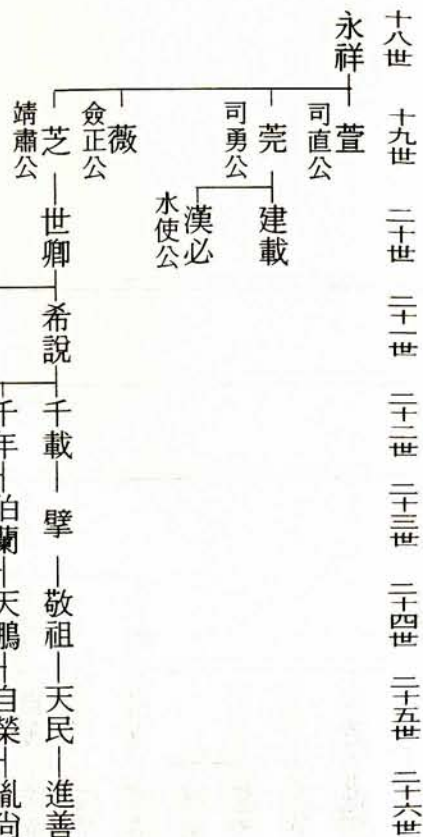 十八世 十九世 二十世 二十一世 二十二世 二十三世 二十四世 二十五世 二十六世
永祥
萱
司直公
莞 建載
司勇公
漢必
水使公
薇
僉正公
芝 世卿 希說 千載 擘 敬祖 天民 進善
靖肅公
千年 伯蘭 天鵬 自榮 胤尙